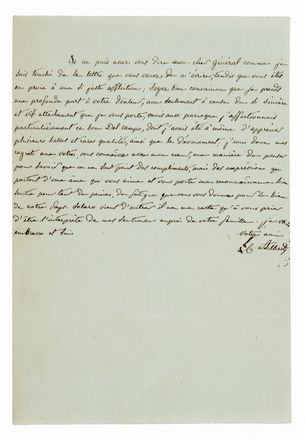 Je ne puis assez vous dire mon cher Général comme je
suis touché de la lettre que vous venez de m'écrire, tandis que vous êtes
en proie à une si juste affliction; soyez bien convaincu que je prends
une profonde part à votre douleur, non seulement à cause du si sincère
et vif attachement que je vous porte, mais aussi parceque j'affectionnais
particulièrement ce bon Del Campo, dont j'avais été à même d'apprécier
plusieurs belles et rares qualités, ainsi que le dévouement, j'unis donc mes
regrets aux votres, vous connaissez assez mon cœur, ma manière de penser
pour savoir que ce ne sont point des compliments, mais des expressions qui
partent d'une ame qui vous aime et vous porte une reconnaissance bien
sentie pour tant de peines, de fatigues que vous vous donnez pour le bien
de notre Pays. il ne me reste qu'à vous prier
d'être l'interprète de mes sentimens auprès de votre famille
embrasse et suis
Votre ami
C. Albert